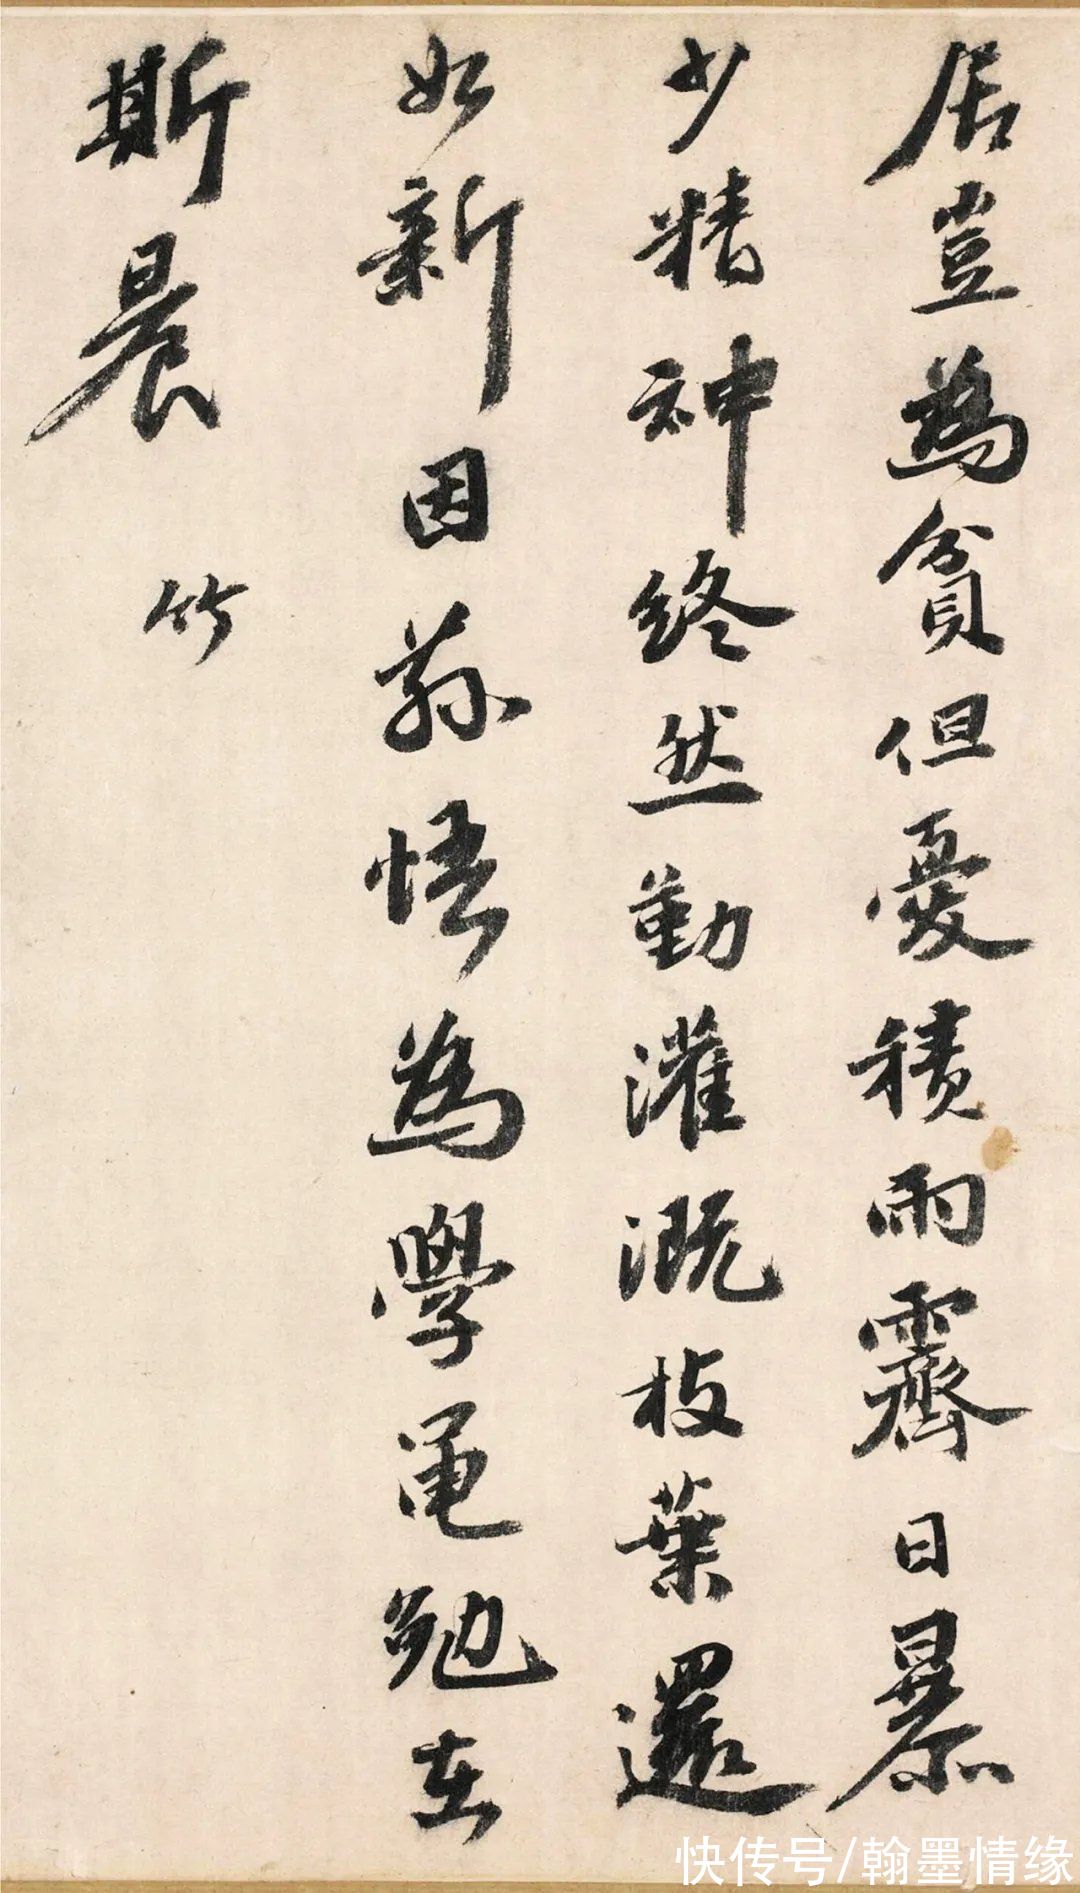 居豈為貧但憂積雨霽日暴
少精神終然勤灌溉枝葉還
如新因蓀悟為學黽勉在
斯晨 竹
快传号/翰墨情缘